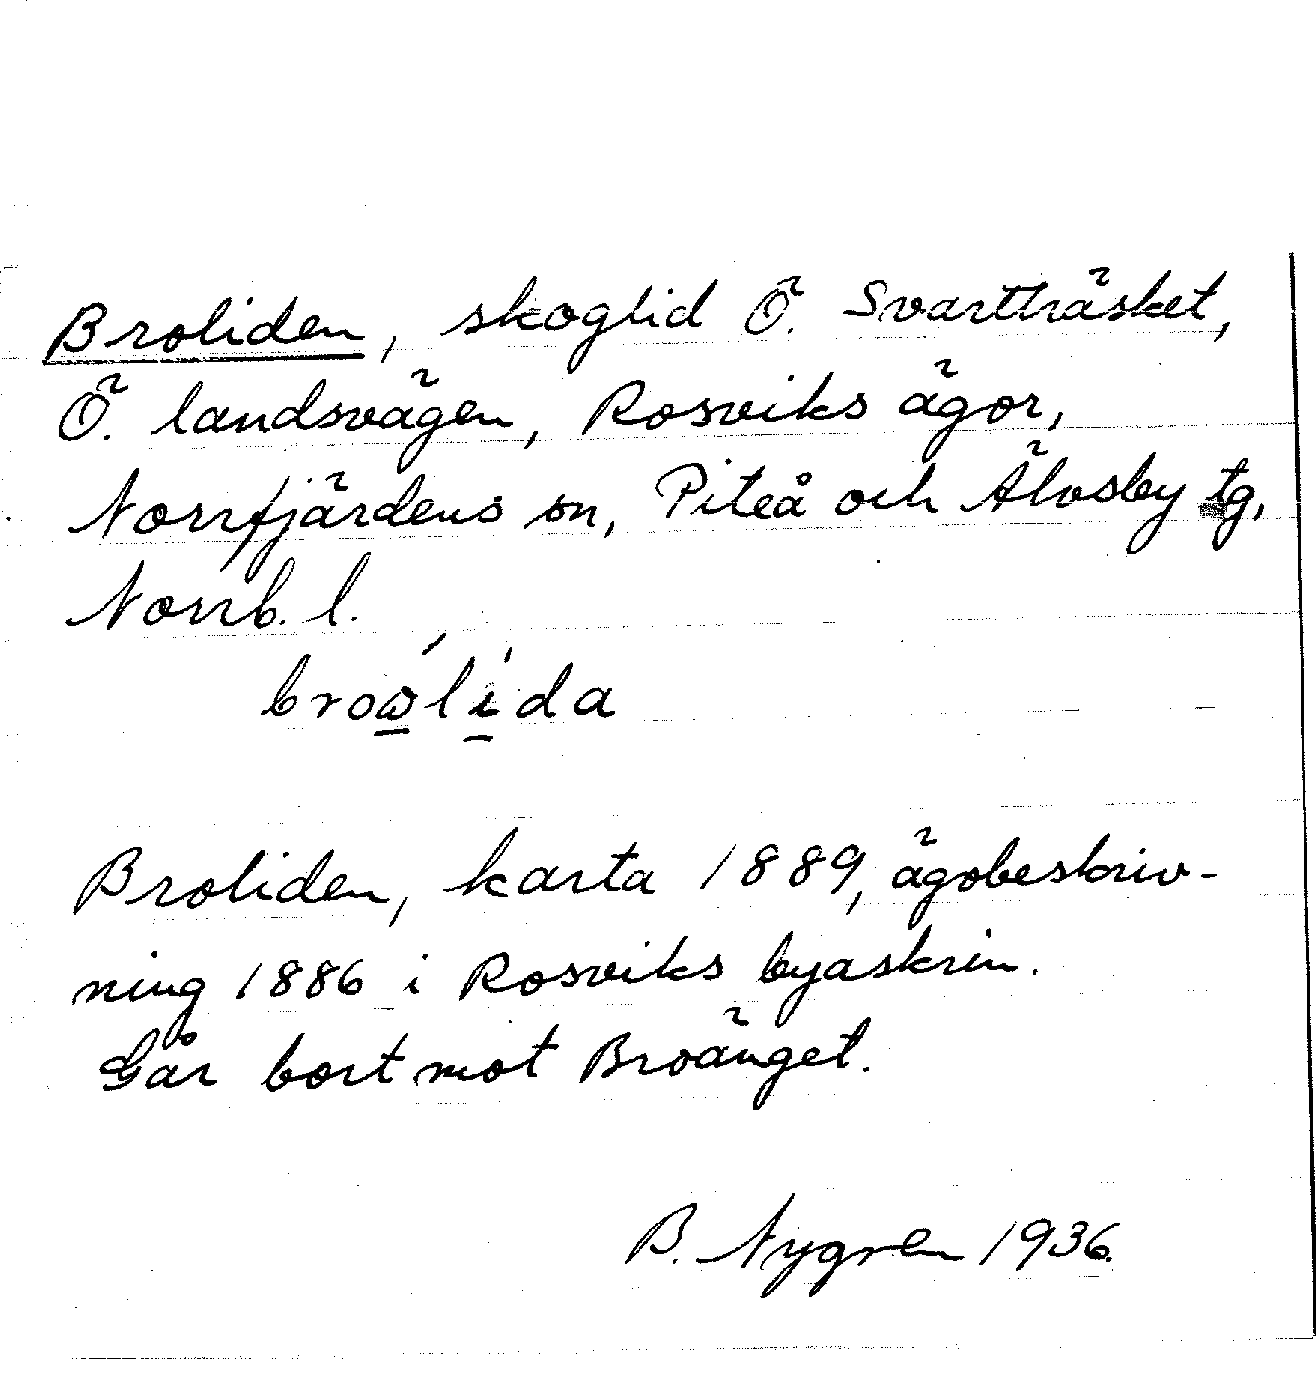 Broliden, skoglid Ö. Svartträsket,
Ö. landsvägen, Rosviks ägor,
Norrfjärdens sn, Piteå och Älvsby tg,
Norrb. l.
broώ̱lì̱da
Broliden, karta 1889, ägobeskriv-
ning 1886 i Rosviks byaskrin.
Går bort mot Broänget.
B. Nygren 1936.